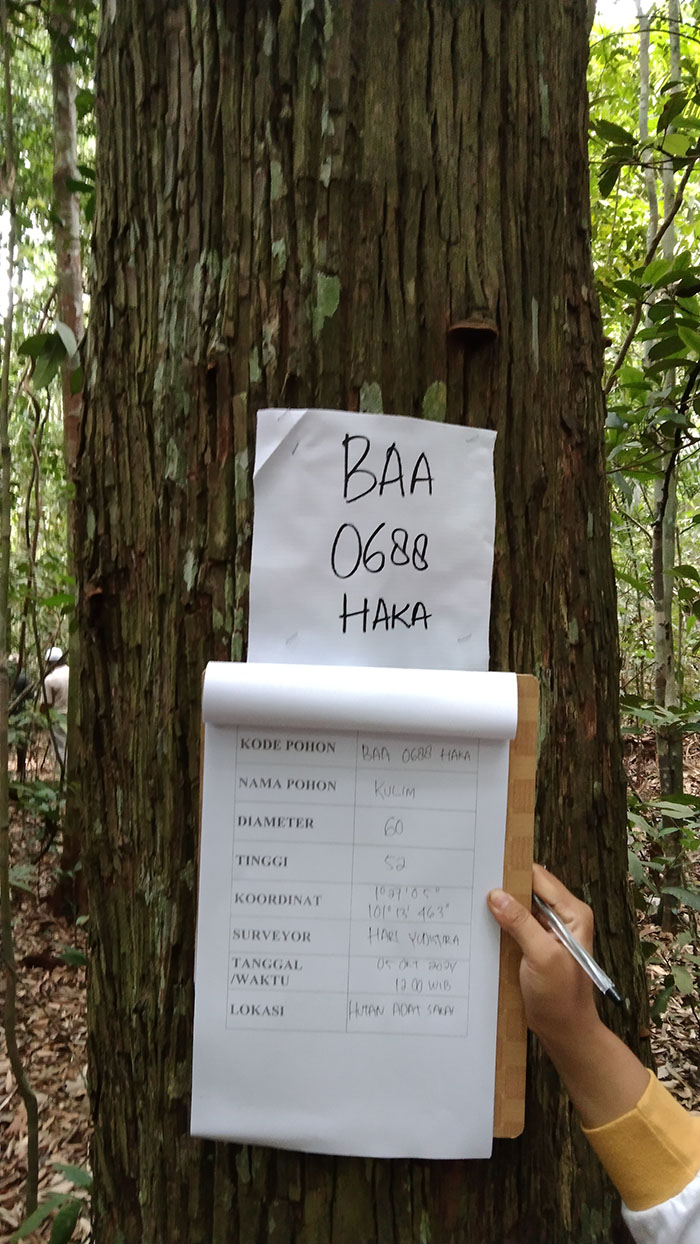 BAA
0688
HAKA
KODE POHON BAA 0688 HAKA
NAMA POHON KULIM
DIAMETER 60
TINGGI 52
KOORDINAT 1°27'05"
101°13' 463"
SURVEYOR HARI YUDISTIRA
TANGGAL 05 OKT 2024
/WAKTU 12.00 WIB
LOKASI HUTAN ADAT SAKAI